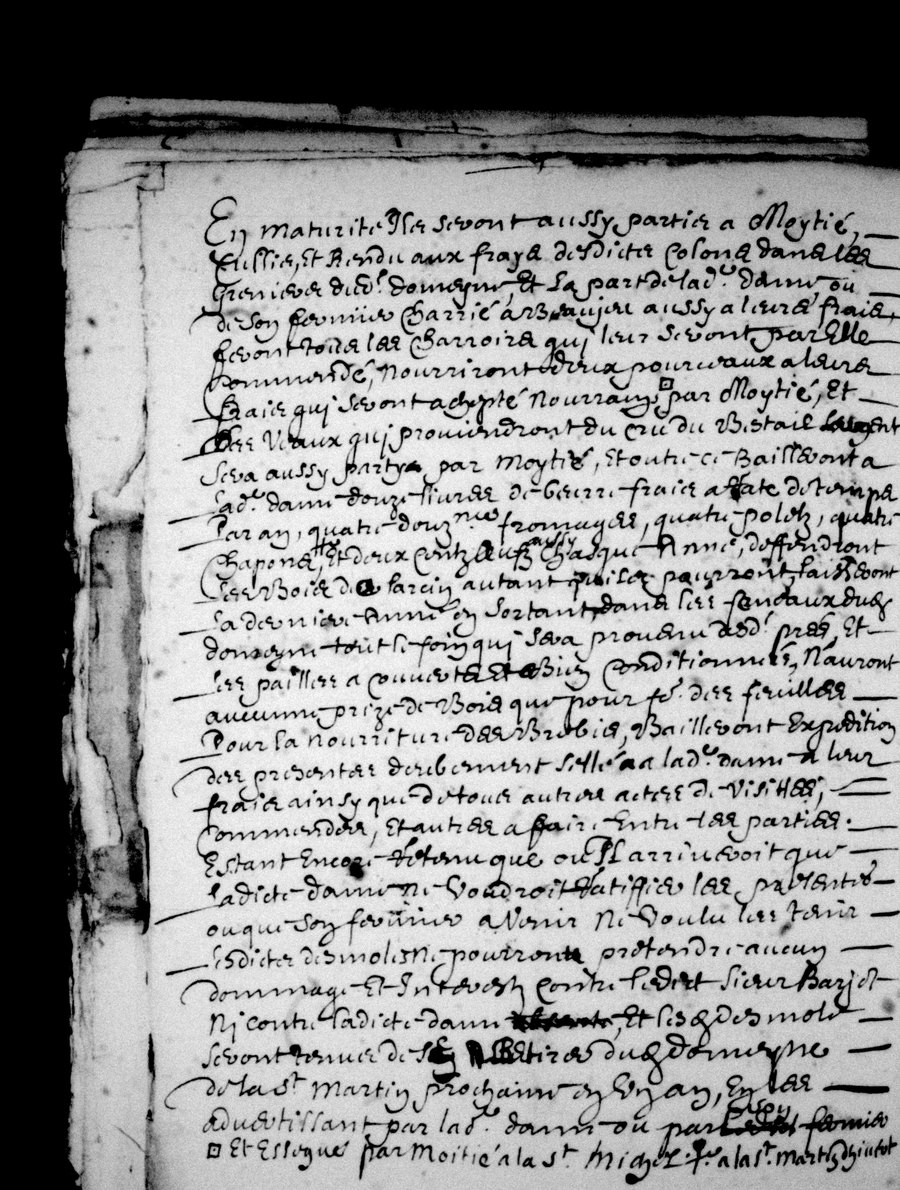 En maturité Ils seront aussy partiez a Moytié,
Cuillie, Et Rendu aux frays desdictez Colons dans les
Greniers dud. domeyne, Et la part de lad. dame ou
de son fermier Charrié a Beaujeu aussy a leurs frais,
feront tous les Charroirs quj leur seront par Elle
Commendé, Nourriront deux pourceaux a leurs
fraiz quj seront achepté Nourrains par Moytié, Et
Les Veaux quj proviendront du cru du Bestail
Sera aussy party par moytié, Et outre ce Bailleront a
Lad. dame douze livres de beurre fraiz a de temps
Par an, quatre douz.ne fromages, quatre poletz, quatre
Chapons, Et deux centz œufz aussy Chasque Année, deffendront
Les Bois de larcin autant qu'ilz pourront, laisseront
La derniere Année en sortant, dans les feneaux dud.
domeyne tout le foin quj sera provenu desd. prés, Et
Les pailles a couvertz Et Bien Conditionnées, N'auront
aucunne prize de Bois que pour fe. des feuilles
Pour la nourriture des Brebis, Bailleront Expedition
des presentes deubement sellé a lad. dame a leur
fraiz ainsy que de tous autres actes de Visittes,
Commendes, Et autres a faire Entre les parties.
Estant Encore Retenu que ou Il arriveroit que
Ladicte dame ne Voudroit Ratiffier les presentes
ou que Son fermier a Venir Ne Voulu les tenir
Lesdictz desmoles Ne pourront pretendre aucun
dommage Et Interestz contre ledict Sieur Barjot
Nj contre ladicte dame, Et lesd. desmole
seront tenus de s'En Retirer dud. domeyne
de la St Martin prochaine en Un an, En les
advertissant par lad. dame ou par son fermier
Et Essegue par Moitié a la St Michel a la St Martin